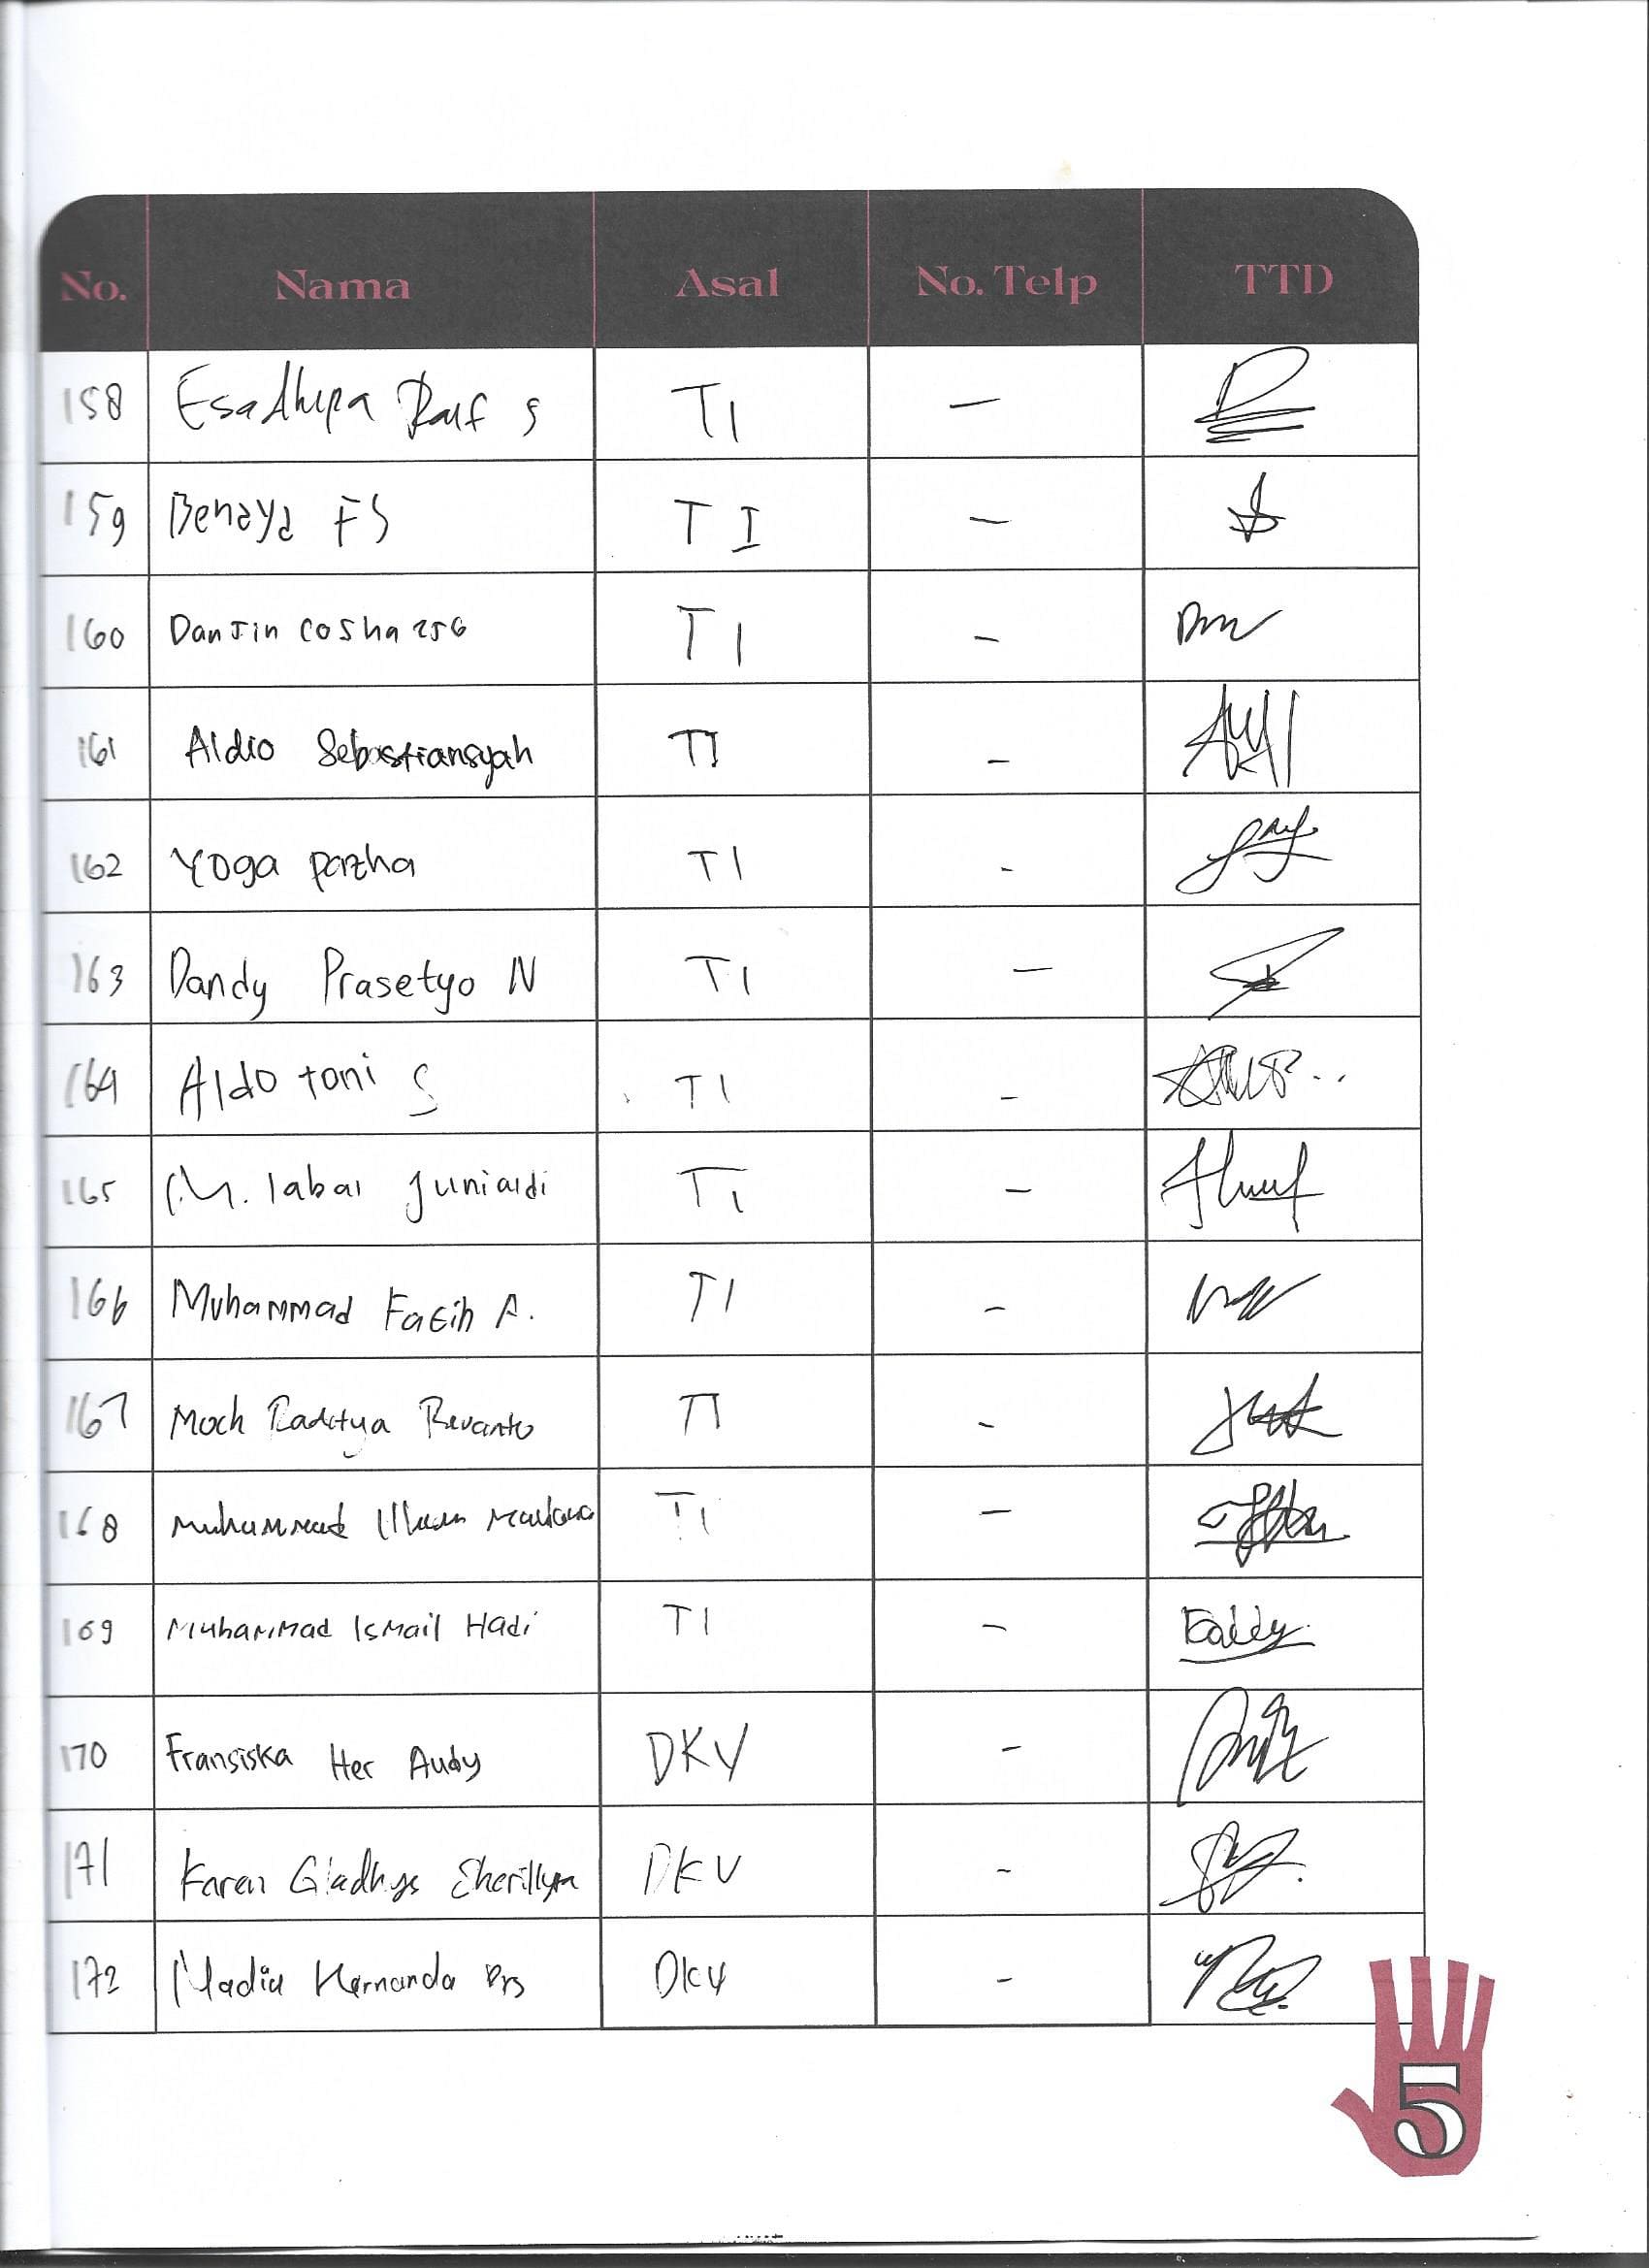 No. Nama Asal No. Telp TTD
158 Esadhipa Raif S TI -
159 Benaya FS TI -
160 Danjin cosha TI -
161 Aldio Sebastiansyah TI -
162 Yoga pazha TI -
163 Dandy Prasetyo N TI -
164 Aldo toni S TI -
165 M. Iabal Juniardi TI -
166 Muhammad Fatih A. TI -
167 Moch Raditya Revanto TI -
168 Muhammad Ilham Maulana TI -
169 Muhammad Ismail Hadi TI -
170 Fransiska Her Audy DKV -
171 Karen Gladhys Sherillyn DKV -
172 Nadia Hernanda Prs DKV -
5